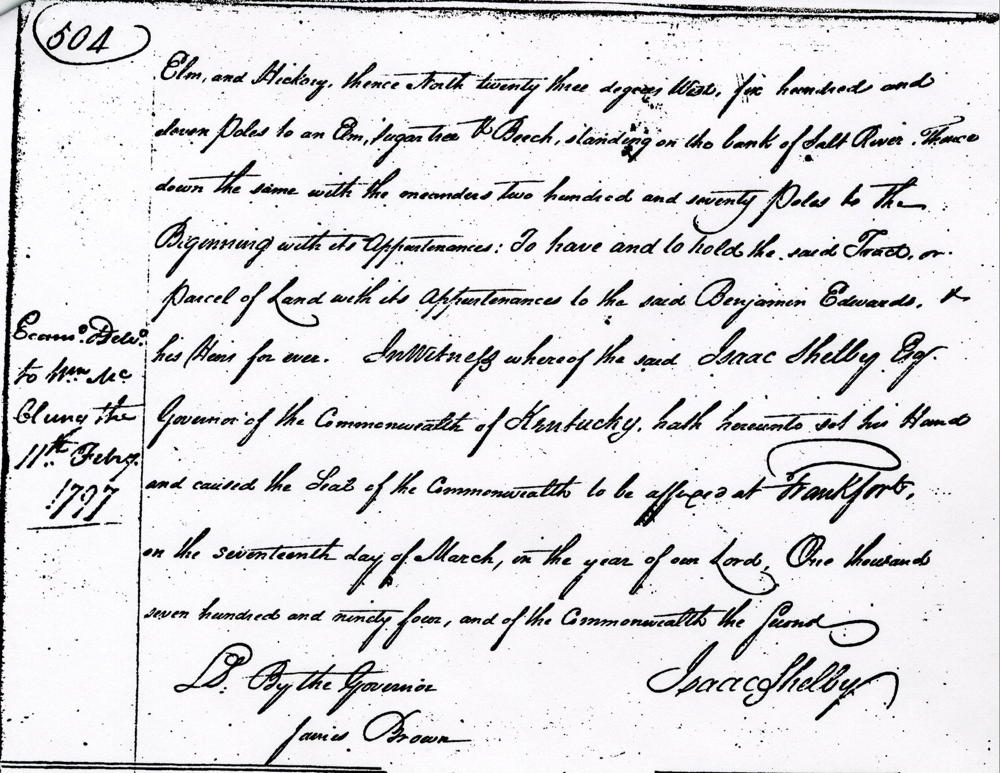 504
Elm, and Hickory, thence North twenty three degrees West, six hundreds and
eleven Poles to an Elm, Sugar tree & Beech, standing on the bank of Salt River. Thence
down the same with the meanders two hundred and seventy Poles to the
Biginning with its Appurtenances: To have and to hold the said Tract, or
Parcel of Land with its Appurtenances to the said Benjamin Edwards, &
his Heirs for ever. In Witness whereof the said Isaac Shelby Esqr.
Governor of the Commonwealth of Kentucky, hath hereunto set his Hand
and caused the Seal of the Commonwealth to be affixed at Frankfort,
on the seventeenth day of March, in the year of our Lord, One thousand
seven hundred and ninety four, and of the Commonwealth the Second
LS. By the Governor
Isaac Shelby
James Brown
Examd. & Deld.
to Wm. Mc
Clung the
11th. Febry.
1797